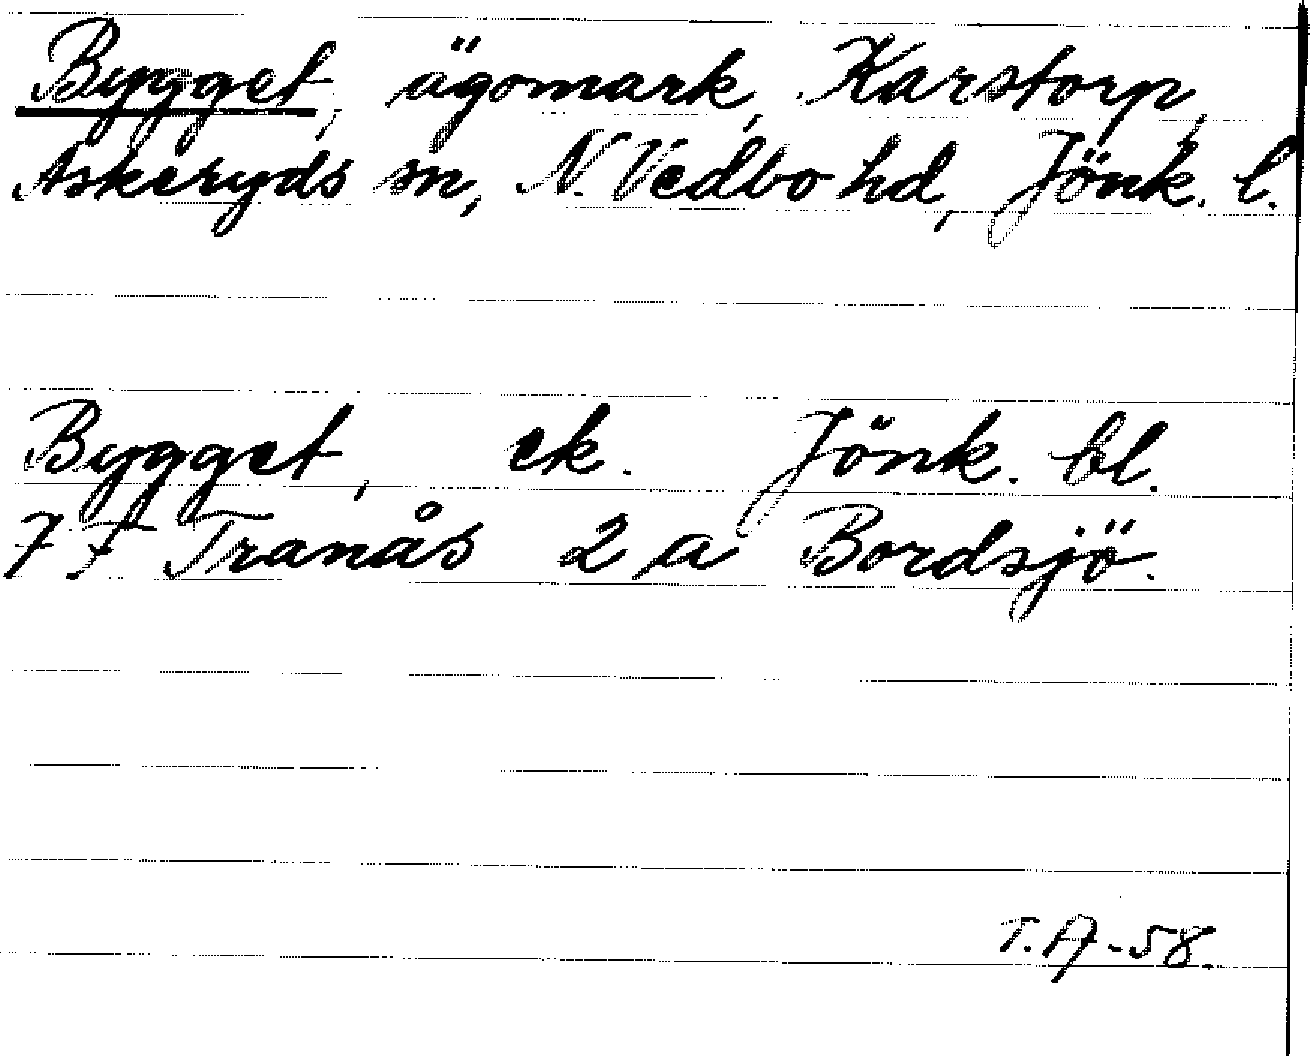 Bygget, ägomark, Karstorp,
Askeryds sn, N. Vedbo hd, Jönk. l.
Bygget, ek. Jönk. bl.
7 F Tranås 2 a Bordsjö.
T. A-58.